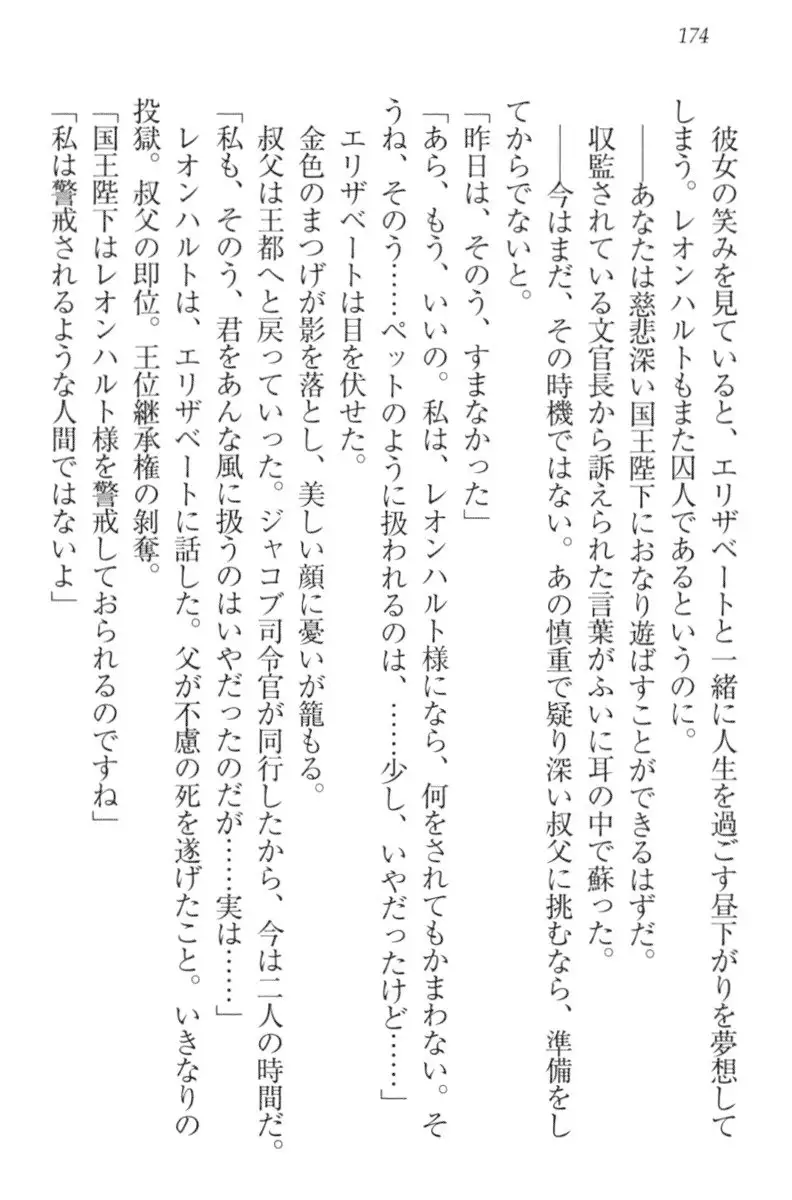 174
彼女の笑みを見ていると、エリザベートと一緒に人生を過ごす昼下がりを夢想して
しまう。レオンハルトもまた囚人であるというのに。
――あなたは慈悲深い国王陛下におなり遊ばすことができるはずだ。
収監されている文官長から訴えられた言葉がふいに耳の中で蘇った。
――今はまだ、その時機ではない。あの慎重で疑り深い叔父に挑むなら、準備をし
てからでないと。
「昨日は、そのう、すまなかった」
「あら、もう、いいの。私は、レオンハルト様になら、何をされてもかまわない。そ
うね、そのう……ペットのように扱われるのは、……少し、いやだったけど……」
エリザベートは目を伏せた。
金色のまつげが影を落とし、美しい顔に憂いが籠もる。
叔父は王都へと戻っていった。ジャコブ司令官が同行したから、今は二人の時間だ。
「私も、そのう、君をあんな風に扱うのはいやだったのだが……実は……」
レオンハルトは、エリザベートに話した。父が不慮の死を遂げたこと。いきなりの
投獄。叔父の即位。王位継承権の剥奪。
「国王陛下はレオンハルト様を警戒しておられるのですね」
「私は警戒されるような人間ではないよ」